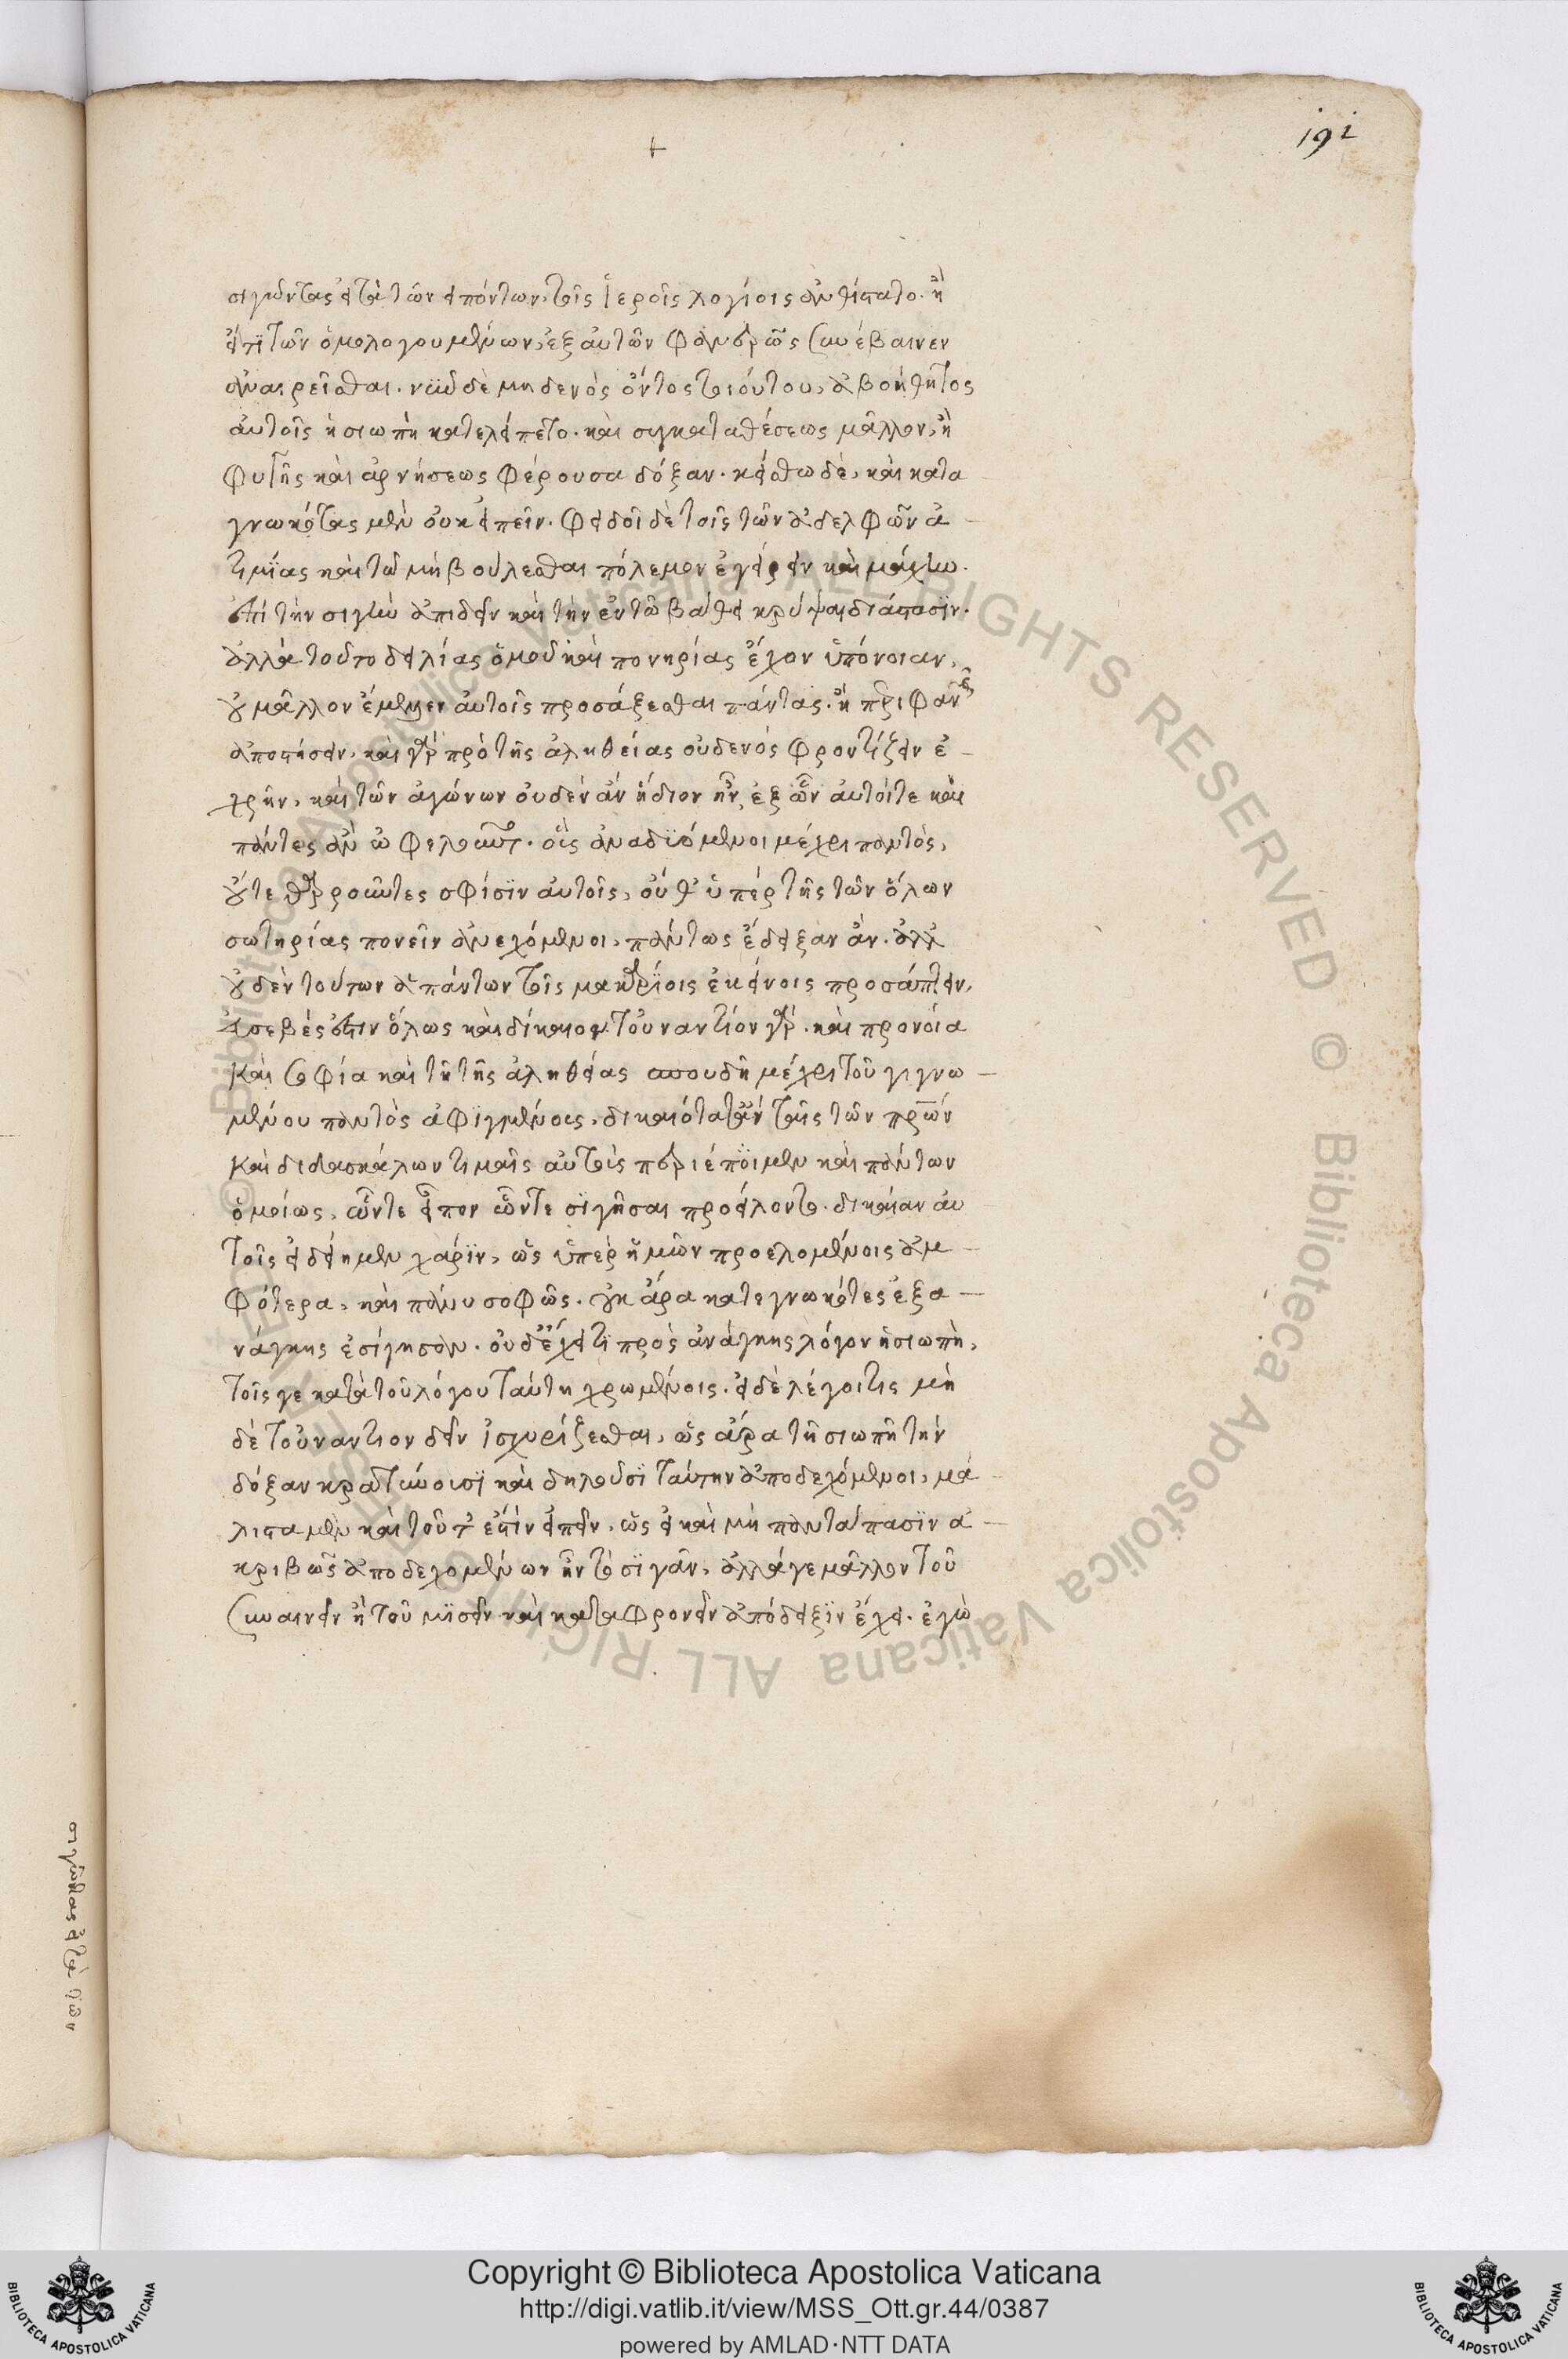 192
σιγῶντας εἴ τι τῶν εἰπόντων, τοῖς ἱεροῖς λογίοις ἀνθίστατο. ἢ
εἴ τι τῶν ὁμολογουμένων, ἐξ αὐτῶν φανερῶς συνέβαινεν
ἀναιρεῖσθαι. νῦν δὲ μηδενὸς ὄντος τοιούτου, ἀβοήθητος
αὐτοῖς ἡ σιωπὴ κατελείπετο. καὶ συγκαταθέσεως μᾶλλον, ἢ
φυγῆς καὶ ἀρνήσεως φέρουσα δόξαν. κείσθω δὲ, καὶ κατα
γνωκότας μὲν οὐκ εἰπεῖν. φειδοῖ δὲ τοῖς τῶν ἀδελφῶν ἀ-
τιμίας καὶ τῷ μὴ βούλεσθαι πόλεμον ἐγείρειν καὶ μάχην.
ἐπὶ τὴν σιγὴν ἀπιδεῖν καὶ τὴν ἐν τῷ βάθει κρύψαι διάστασιν.
ἀλλὰ τοῦτο δειλίας ὁμοῦ καὶ πονηρίας ἔχον ὑπόνοιαν,
οὐ μᾶλλον ἔμελλεν αὐτοῖς προσάξεσθαι πάντας. ἢ περιφανῶς
ἀποστήσειν. καὶ γὰρ πρὸ τῆς ἀληθείας οὐδενὸς φροντίζειν ἐ-
χρῆν, καὶ τῶν ἀγώνων οὐδὲν ἂν ἥδιον ἦν, ἐξ ὧν αὐτοί τε καὶ
πάντες ἂν ὠφελοῦντο. οὓς ἀναδυόμενοι μέχρι παντὸς,
οὔτε θαρροῦντες σφίσιν αὐτοῖς, οὔθ' ὑπὲρ τῆς τῶν ὅλων
σωτηρίας πονεῖν ἀνεχόμενοι, πάντως ἔδειξαν ἄν. ἀλλ'
οὐδὲν τούτων ἁπάντων τοῖς μακαρίοις ἐκείνοις προσάπτειν,
εὐσεβές ἐστιν ὅλως καὶ δίκαιον. τοὐναντίον γὰρ. καὶ προνοία
καὶ σοφία καὶ τῇ τῆς ἀληθείας σπουδῇ μέχρι τοῦ γιγνω-
μένου παντὸς ἀφιγμένους, δικαιότατ' ἂν ταῖς τῶν πατέρων
καὶ διδασκάλων τιμαῖς αὐτοὺς περιέποιμεν καὶ πάντων
ὁμοίως, ὧν τε εἶπον ὧν τε σιγῆσαι προείλοντο. δικαίαν αὐ
τοῖς εἰδείημεν χάριν, ὡς ὑπὲρ ἡμῶν προελομένοις ἀμ-
φότερα, καὶ πάνυ σοφῶς. οὐκ ἄρα κατεγνωκότες ἐξ α-
νάγκης ἐσίγησαν. οὐδ' ἔχει τι πρὸς ἀνάγκης λόγον ἡ σιωπὴ,
τοῖς γε κατὰ τοῦ λόγου ταύτῃ χρωμένοις. εἰ δὲ λέγοι τις μὴ
δὲ τοὐναντιον δεῖν ἰσχυρίζεσθαι, ὡς ἄρα τῇ σιωπῇ τὴν
δόξαν κρατύνουσι καὶ δηλοῦσι ταύτην ἀποδεχόμενοι, μά-
λιστα μὲν καὶ τοῦτ' ἐστὶν εἰπεῖν, ὡς εἰ καὶ μὴ πανταπασιν ἀ-
κριβῶς ἀποδεχομένων ἦν τὸ σιγᾶν, ἀλλά γε μᾶλλον τοῦ
συναινεῖν ἢ τοῦ μισεῖν καὶ καταφρονεῖν ἀπόδειξιν ἔχει. ἐγὼ
σιγῶντας εἴ τι τῶν
Copyright © Biblioteca Apostolica Vaticana
http://digi.vatlib.it/view/MSS_Ott.gr.44/0387
powered by AMLAD·NTT DATA